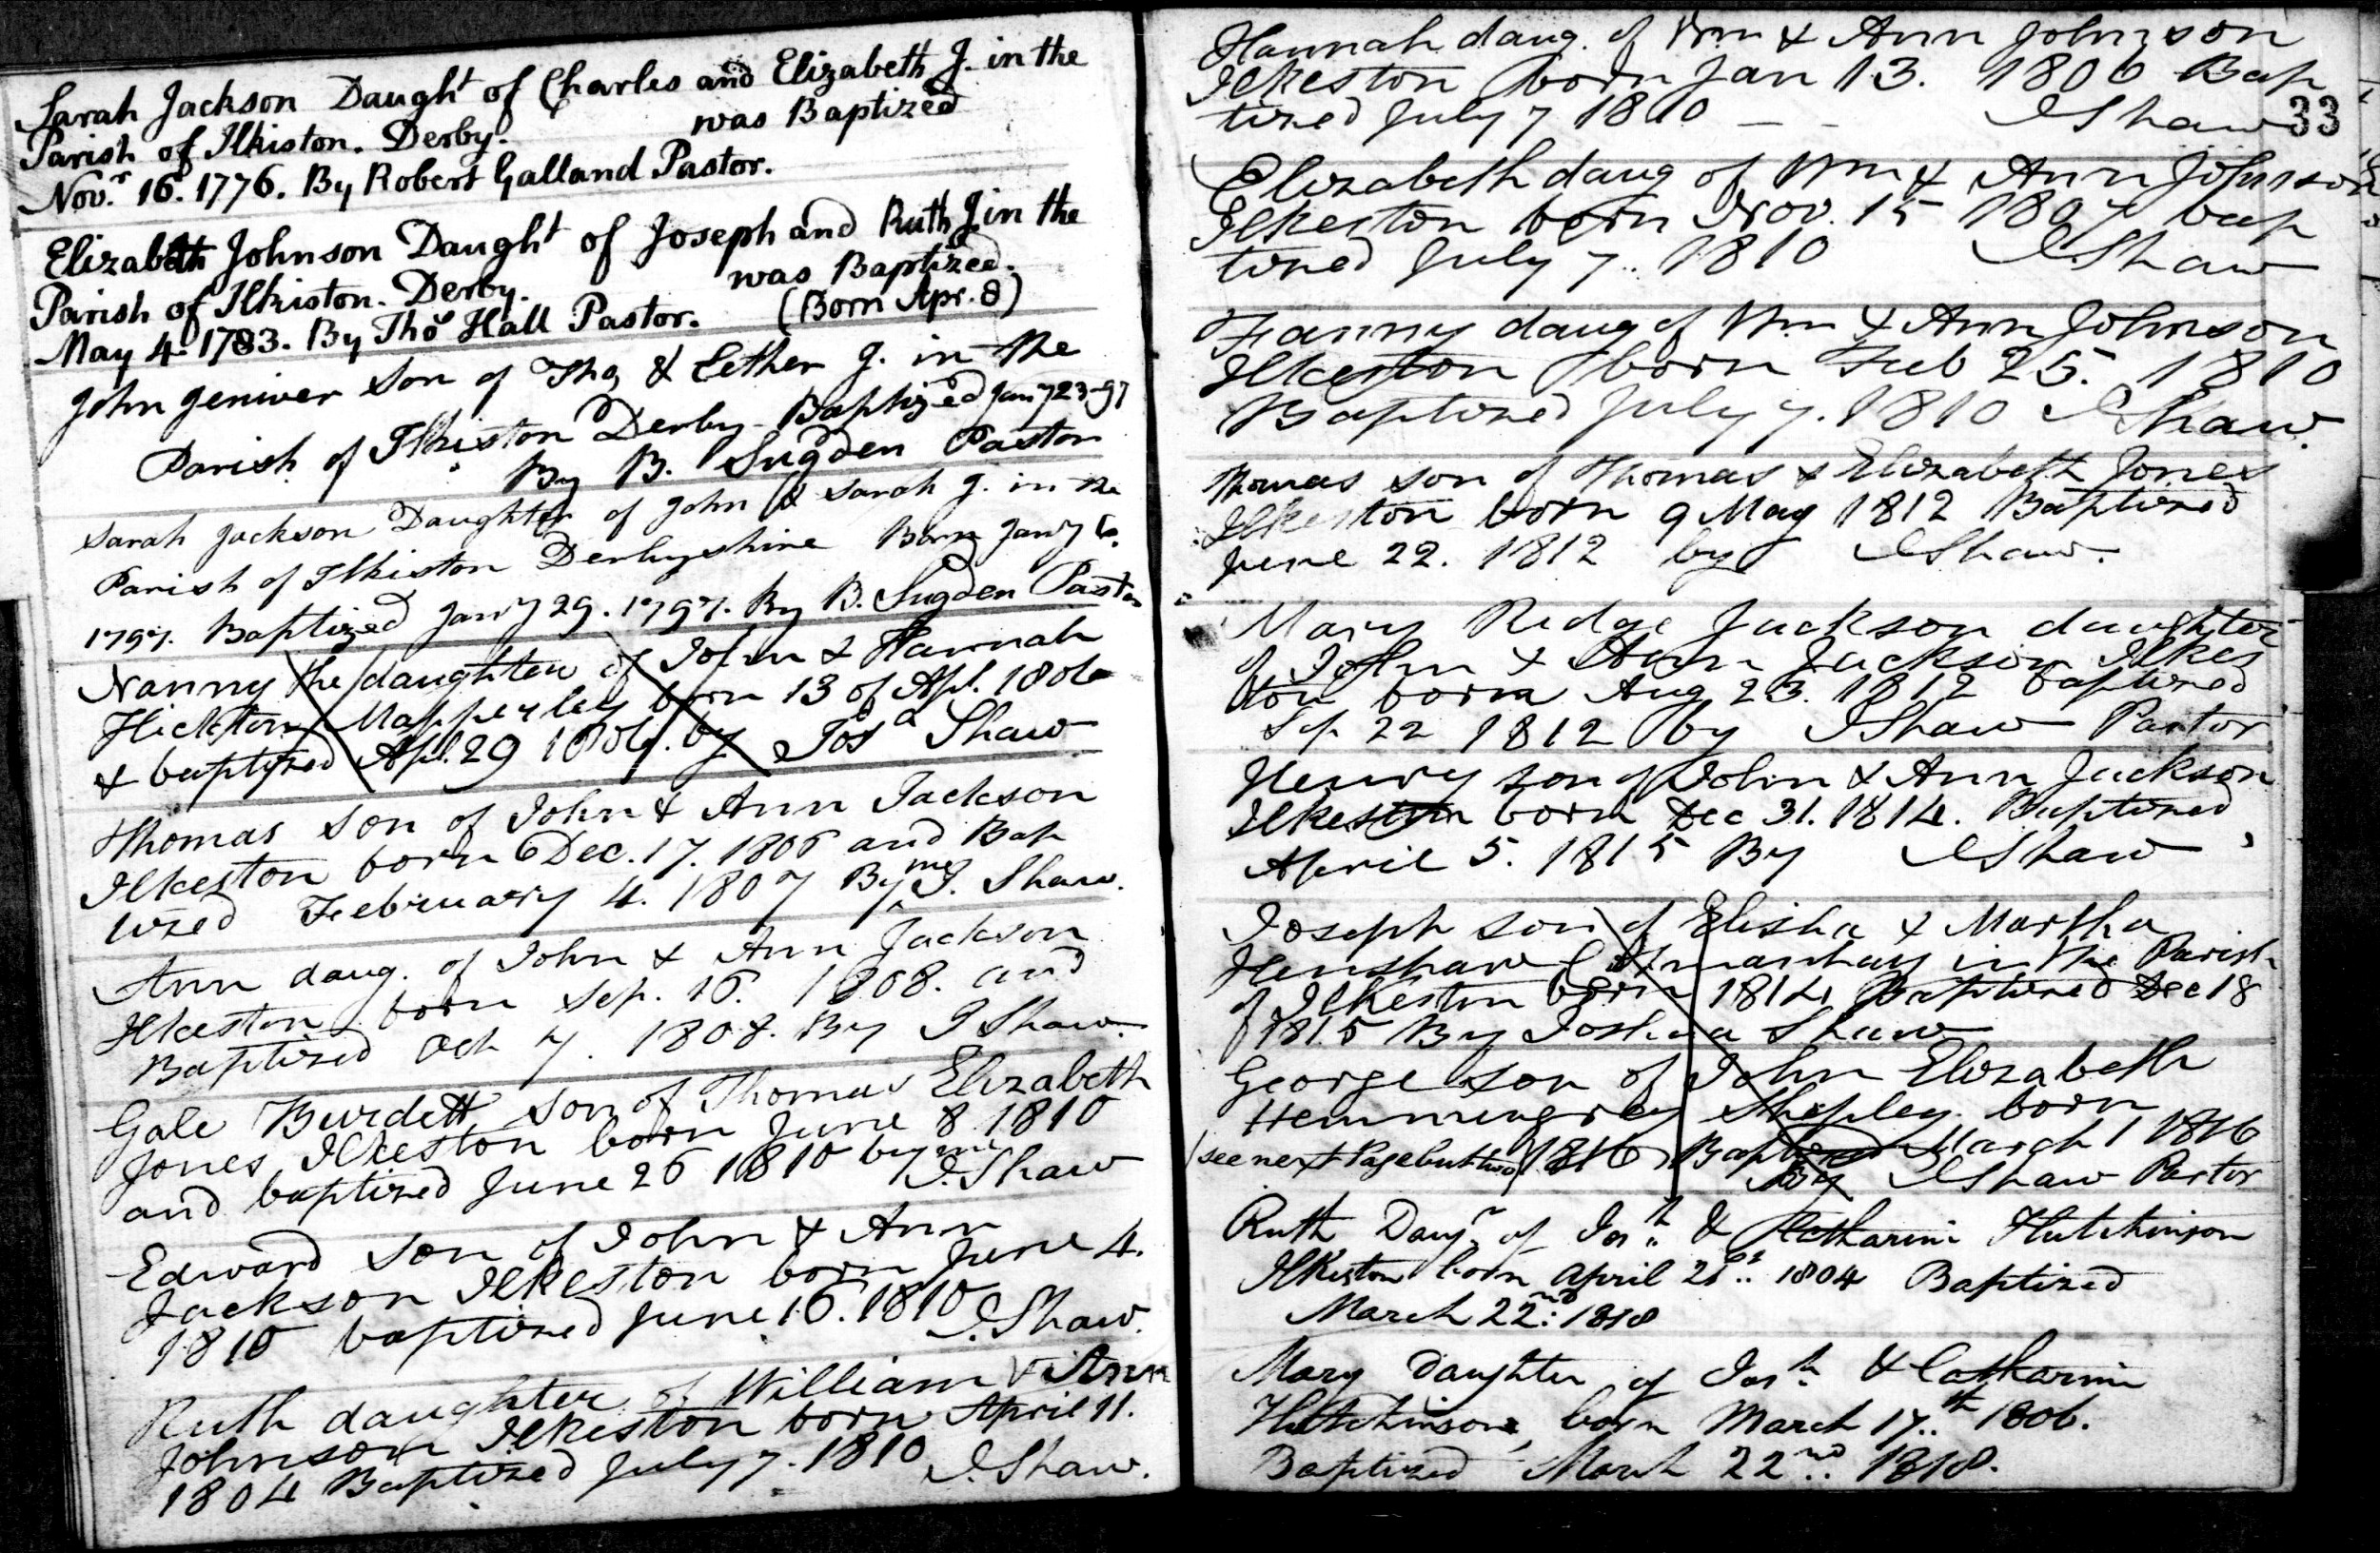 Sarah Jackson Daught of Charles and Elizabeth J. in the
Parish of Ilkiston. Derby. was Baptized
Novr. 16. 1776. By Robert Galland Pastor.
Elizabeth Johnson Daught of Joseph and Ruth J. in the
Parish of Ilkiston. Derby. was Baptized.
May 4. 1783. By Thos Hall Pastor. (Born Apr. 8)
John Jeniver Son of Thos & Esther J. in the
Parish of Ilkiston Derby Baptized Jany 23-97
By B. Sugden Pastor
Sarah Jackson Daughter of John & Sarah J. in the
Parish of Ilkiston Derbyshire Born Jany 6.
1797. Baptized Jany 29. 1797. By B. Sugden Pastor
Nanny the daughter of John & Hannah
Hickton Mapperley born 13 of Apl. 1806
& baptized Apl. 29 1806. by Josa Shaw
Thomas son of John & Ann Jackson
Ilkeston born Dec. 17. 1806 and Bap
tized February 4. 1807 By me J. Shaw.
Ann daug. of John & Ann Jackson
Ilkeston born Sep. 16. 1808. and
Baptized Oct 7. 1808. By J Shaw.
Gale Burdett son of Thomas Elizabeth
Jones Ilkeston born June 8 1810
and baptized June 26 1810 by me
J. Shaw
Edward son of John & Ann
Jackson Ilkeston born June 4.
1810 baptized June 16. 1810
J. Shaw.
Ruth daughter of William & Ann
Johnson Ilkeston born April 11.
1804 Baptized July 7. 1810
J. Shaw.
Hannah daug. of Wm & Ann Johnson
Ilkeston born Jan 13. 1806 Bap
tized July 7 1810 — — J Shaw
33
Elizabeth daug of Wm & Ann Johnson
Ilkeston born Nov. 15 1807 bap
tized July 7. 1810 J. Shaw
Fanny daug of Wm & Ann Johnson
Ilkeston born Feb 25. 1810
Baptized July 7. 1810 J Shaw.
Thomas son of Thomas & Elizabeth Jones
Ilkeston born 9 May 1812 Baptized
June 22. 1812 by J Shaw.
Mary Ridge Jackson daughter
of John & Ann Jackson Ilkes
ton born Aug 23. 1812 baptized
Sep 22 1812 by J Shaw Pastor
Henry son of John & Ann Jackson
Ilkeston born Dec 31. 1814. Baptized
April 5. 1815 By J Shaw
Joseph son of Elisha & Martha
Henshaw in the Parish
of Ilkeston born 1814 Baptized Dec 18
1815 By Joshua Shaw
George son of John Elizabeth
Hemmingrey Shipley. born
(see next Page but two) 1816 Baptized March 1 1816
By J Shaw Pastor
Ruth Daugr. of Josh. & Catharine Hutchinson
Ilkiston born April 21st. 1804 Baptized
March 22nd: 1818
Mary Daughter of Josh. & Catharine
Hutchinson, born March 17th. 1806.
Baptized March 22nd. 1818.